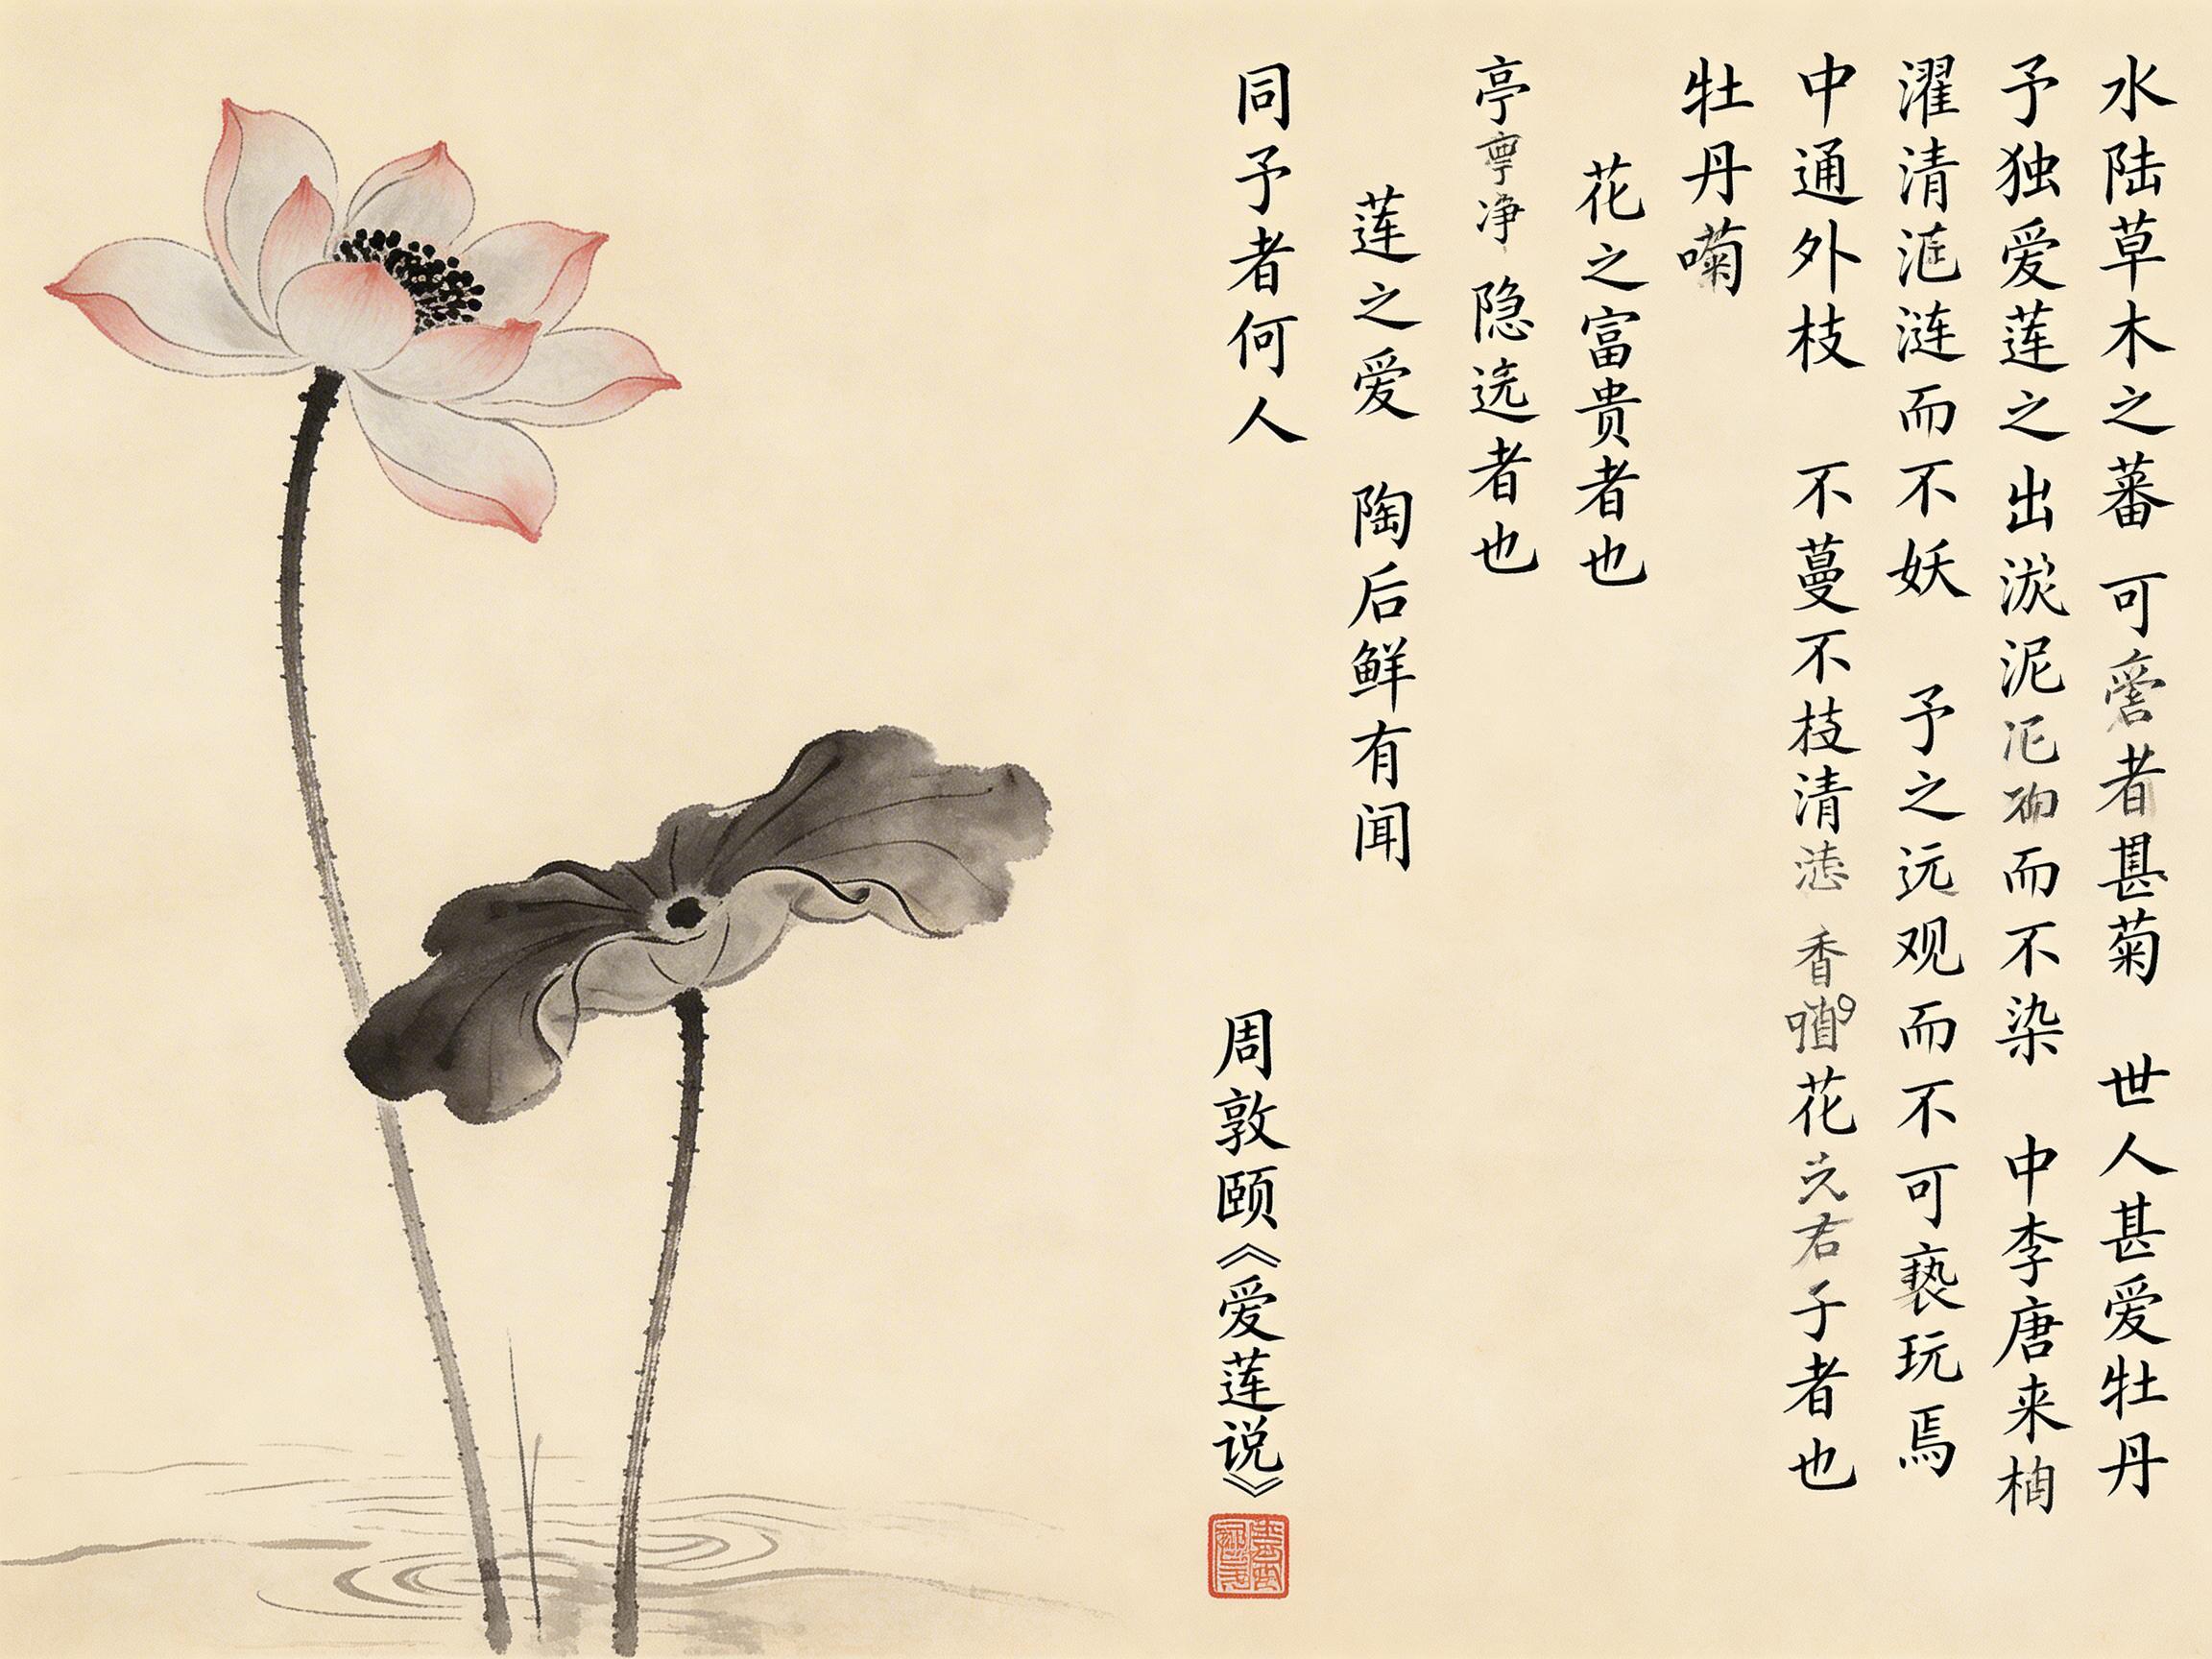 水陆草木之蕃 可者甚菊 世人甚爱牡丹
予独爱莲之出泥而不染 中李唐来
濯清涟而不妖 予之观而不可亵玩焉
中通外枝 不蔓不枝清 香花君子者也
牡丹
花之富贵者也
亭净 隐者也
莲之爱 陶后鲜有闻
同予者何人
周敦颐《爱莲说》